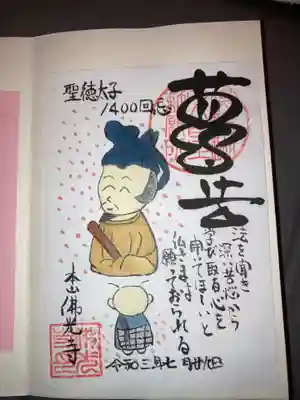 夢告
聖徳太子
1400回忌
法を聞き
深い苦悩から
学び取る心を
開いてほしいと
仏さまは
願っておられる
本山佛光寺
令和三年七月廿四日